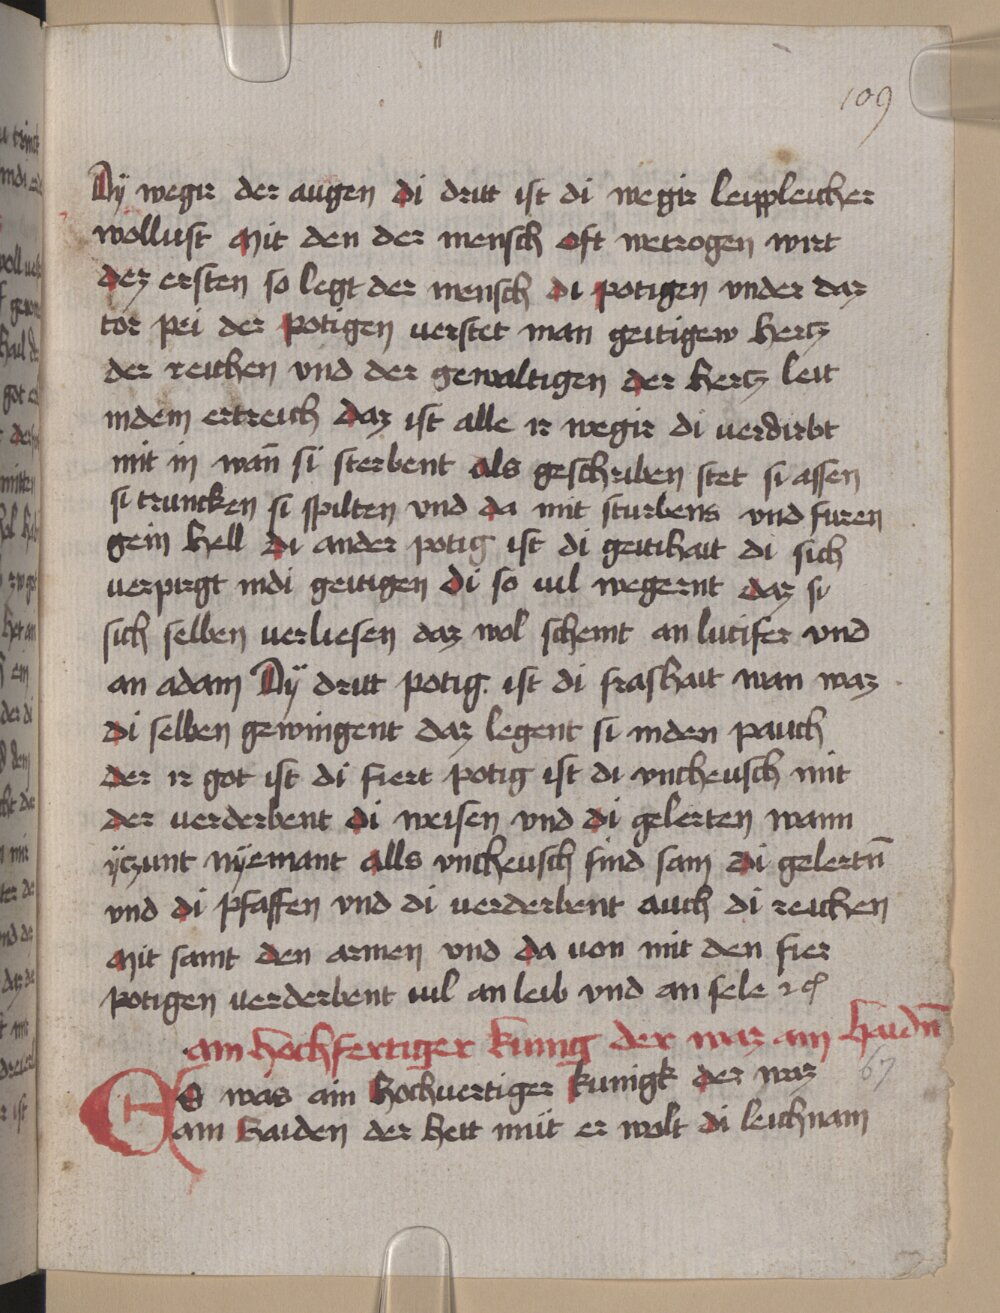 109
Dÿ wegir der augen di dritt ist di wegir leippleicher
wollust Mit den der mensch oft wetrogen wirt
dez ersten so legt der mensch di potigen vnder daz
tor pei der potigen verstet man geitigew hertz
der reichen vnd der gewaltigen der hertz leit
indem ertreich daz ist alle ir wegir di verdirbt
mit in wañ si sterbent als geschriben stet si assen
si truncken si spilten vnd da mit sturbens vnd furen
gein hell di ander potig ist di geitikait di sich
verpirgt indi geitigen di so vil wegernt daz si
sich selben verliesen daz wol scheint an lucifer vnd
an adam Dÿ dritt potig ist di frashait wan waz
di selben gewingent daz legent si inden pauch
der ir got ist di fiert potig ist di vncheusch mit
der verderbent di weisen vnd di gelerten wann
ÿczunt nÿemant alls vncheusch sind sam di gelertñ
vnd di pfaffen vnd di verderbent auch di reichen
Mit samt den armen vnd da von mit den fier
potigen verderbent vil an leib vnd an sele ꝛc
ain hochfertiger kunig der waz ain haidñ
67
Es was ain hochvertiger kunigk der waz
ain haiden der hett müt er wolt di leichnam